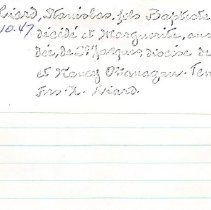 Liard, Stanislas, fils Baptiste
10.47 décédé et Marguerite, aussi
dée, de St Jacques diocèse de
et Nancy O'Flanagan. Tem
Frs. X. Liard.